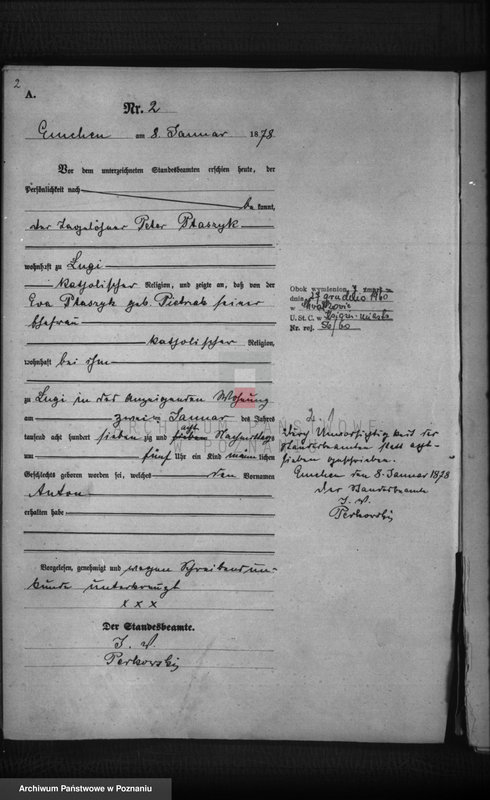 2
A.
Nr. 2
Emchen am 8. Januar 1878
Vor dem unterzeichneten Standesbeamten erschien heute, der
Persönlichkeit nach
be kannt,
der Tagelöhner Peter Ptaszyk
wohnhaft zu Lugi
katholischer Religion, und zeigte an, daß von der
Eva Ptaszyk geb. Pietrak seiner
Ehefrau
katholischer Religion,
wohnhaft bei ihm
zu Lugi in der Anzeigenden Wohnung
am zweiten Januar des Jahres
tausend acht hundert sieben zig und acht sieben Nachmittags
um fünf Uhr ein Kind männ lichen
Geschlechts geboren worden sei, welches den Vornamen
Anton
erhalten habe
Vorgelesen, genehmigt und wegen Schreibensun-
kunde unterkreuzt
x x x
Der Standesbeamte.
I. V.
Perkowski
Obok wymieniony zmarł
dnia 27 grudnia 1960
w
U. St. C. w
Nr. rej. 56/60
Durch Unvorsichtigkeit des
Standesbeamten statt acht
sieben geschrieben.
Emchen den 8. Januar 1878
Der Standesbeamte
I. V.
Perkowski
ARCHIWUM PAŃSTWOWE
Archiwum Państwowe w Poznaniu